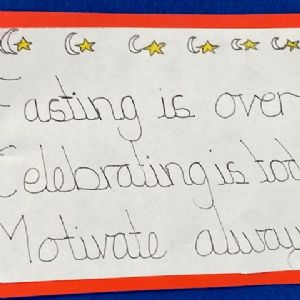 Fasting is over
Celebrating is tod
Motivate always